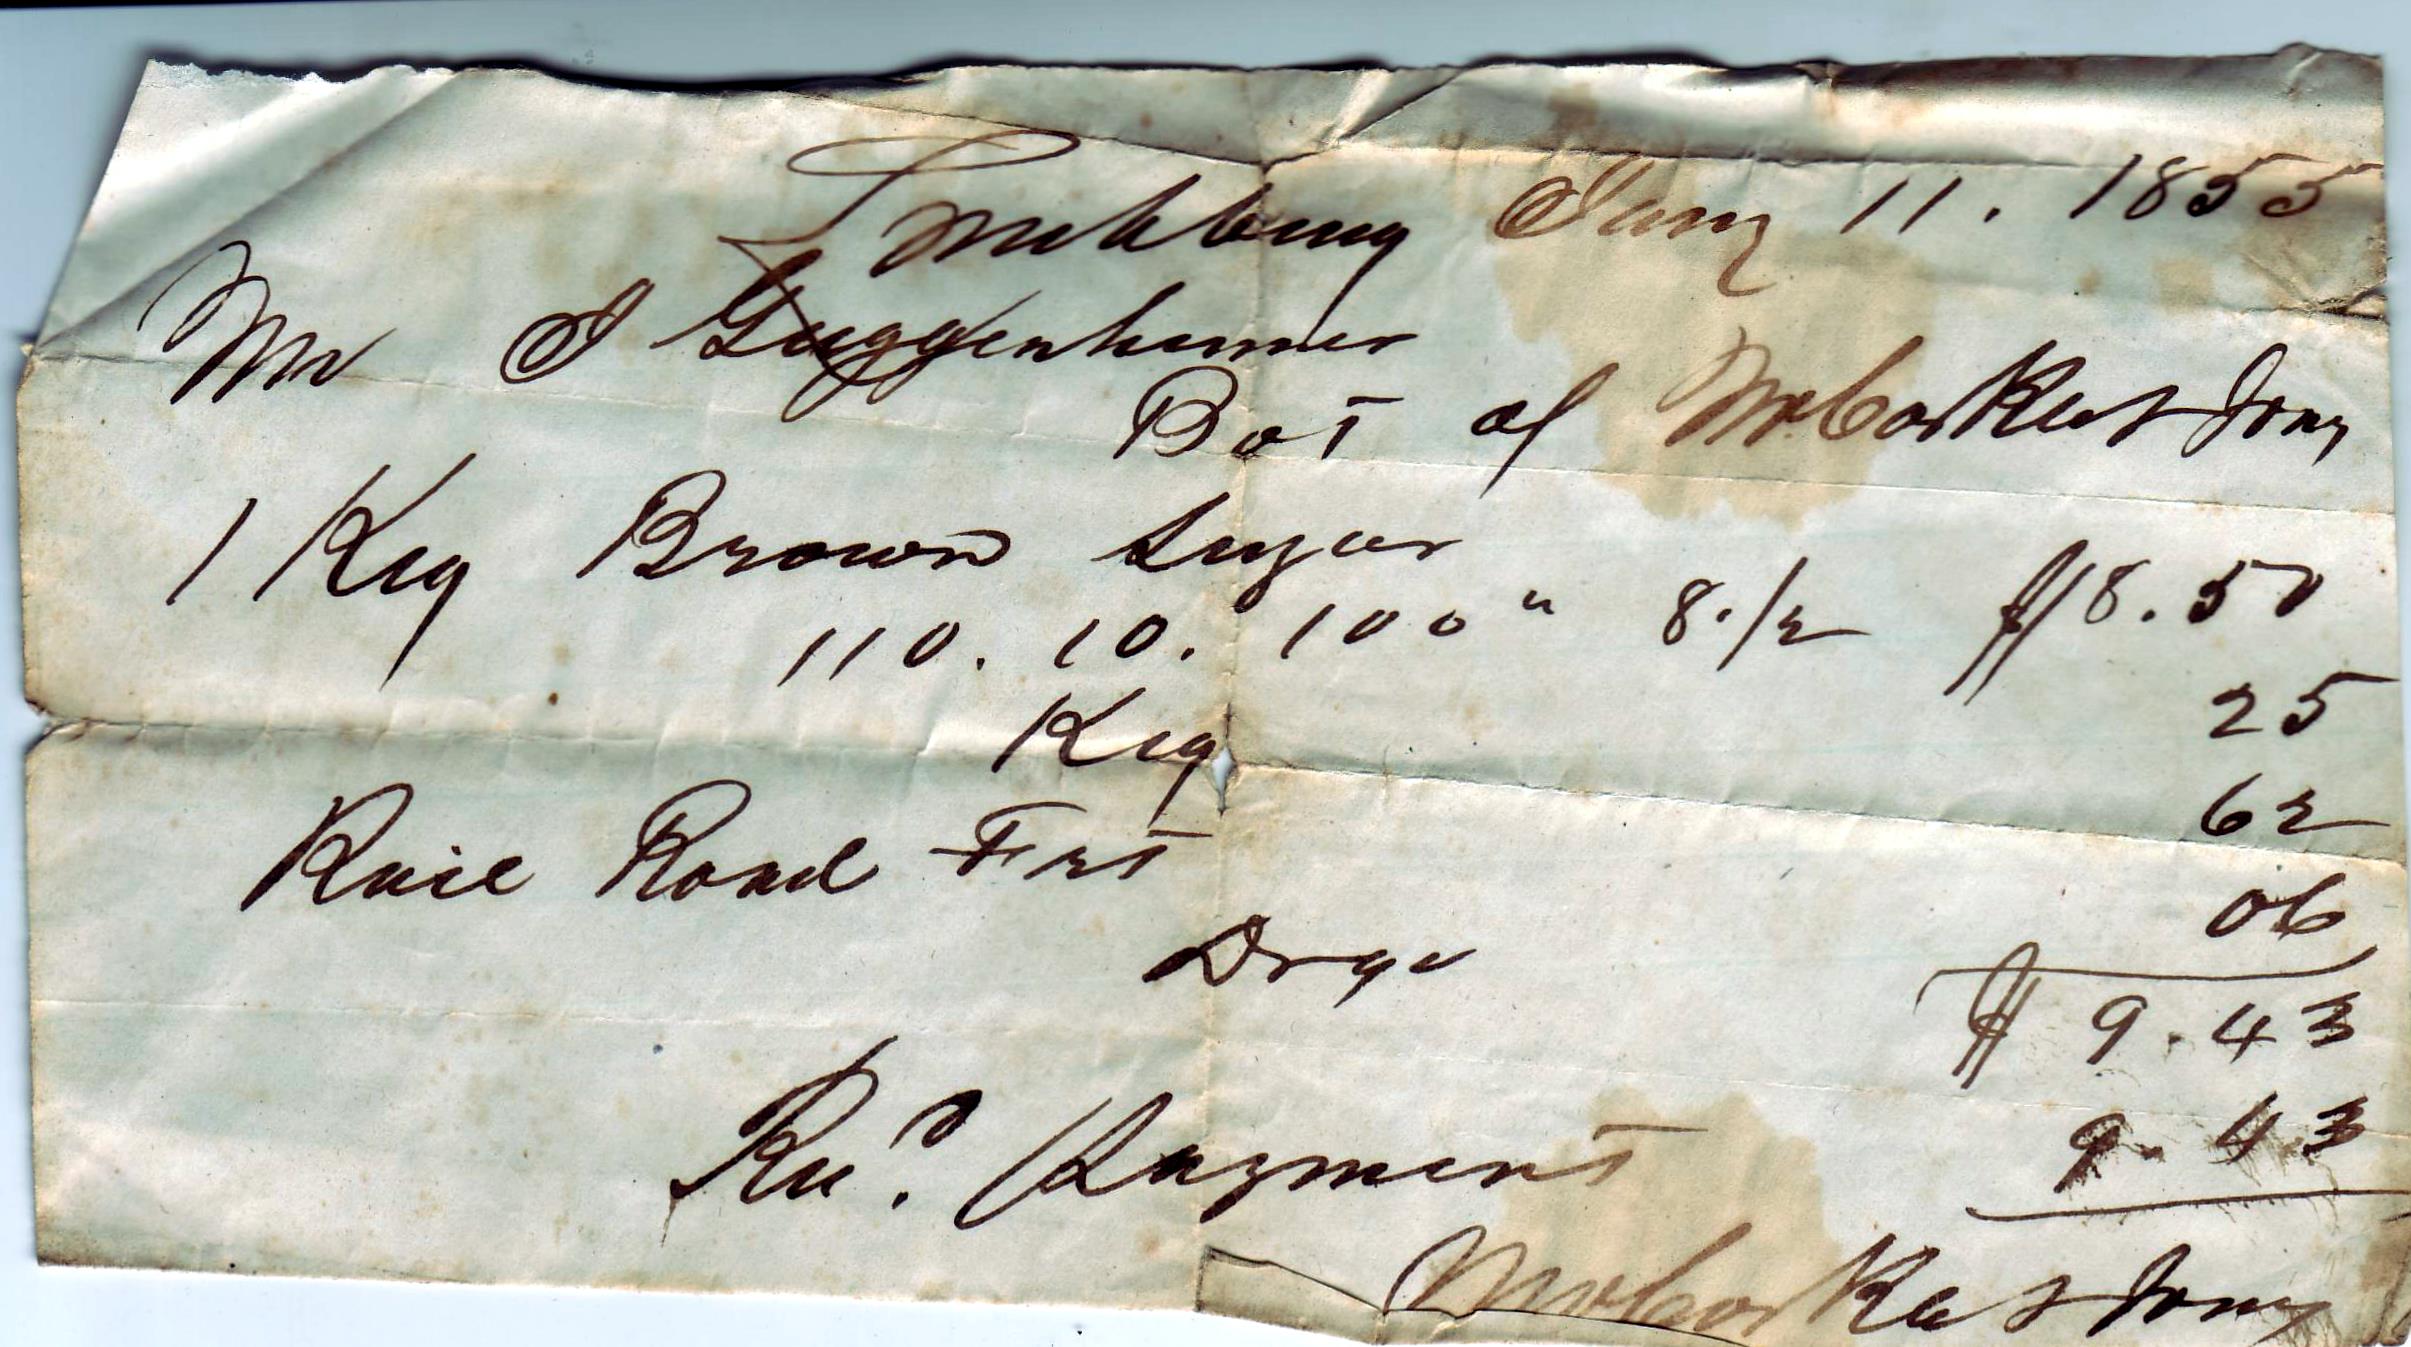 Lynchburg Jany 11. 1855
Mr I Guggenheimer
Bot of McCorkle & Jony
1 Keg Brown Sugar
110. 10. 100 " 8.1/2 $8.50
Keg 25
Rail Road Frt 62
Drge 06
$ 9.43
9.43
Recd. Payment
McCorkle & Jony